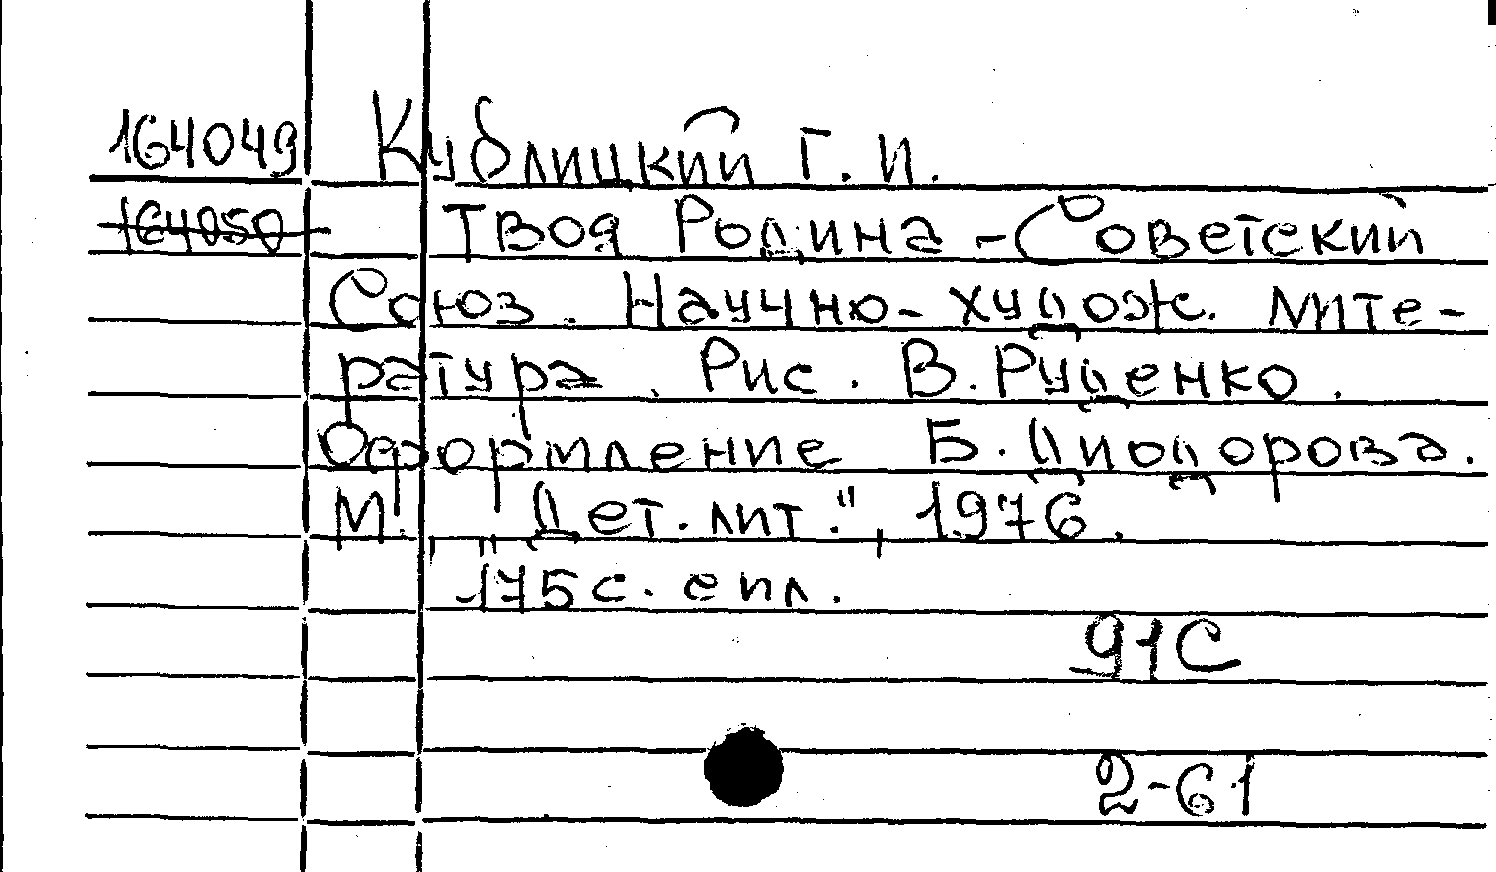 164049 Кублицкий Г. И.
164050 Твоя Родина - Советский
Союз. Научно-худож. лите-
ратура. Рис. В. Руденко.
Оформление Б. Диодорова.
М., "Дет. лит.", 1976.
175 с. с ил.
91С
2-61